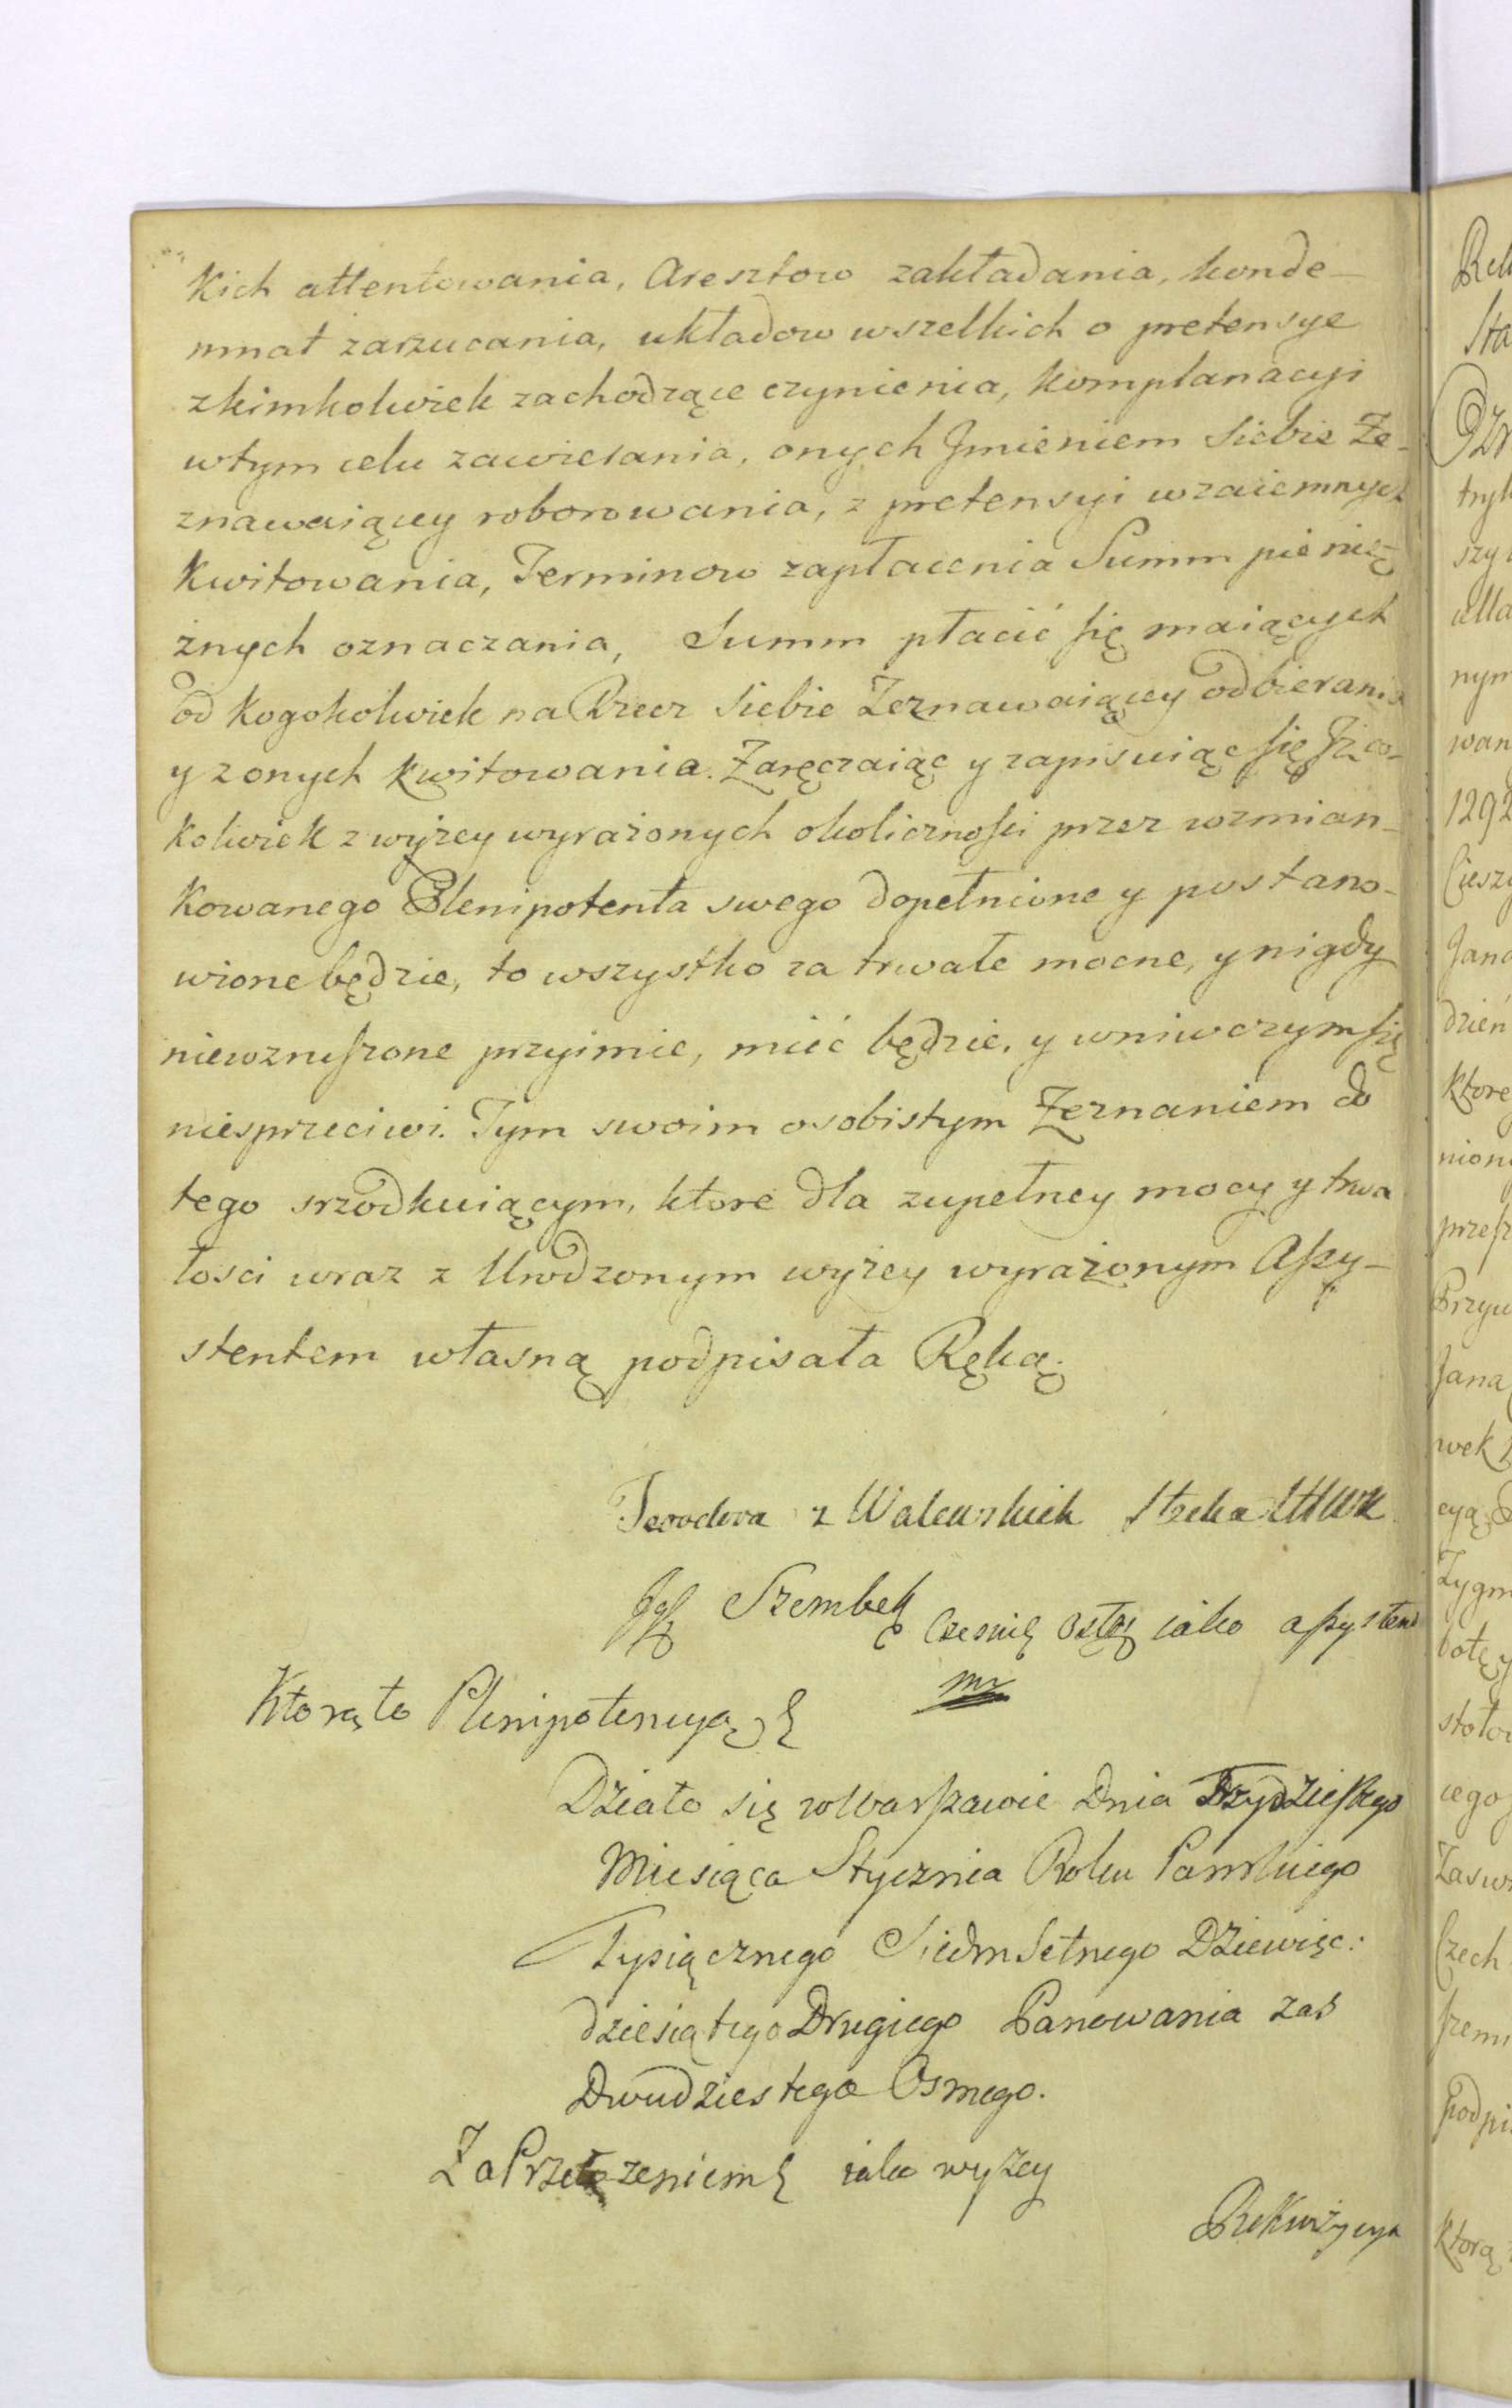 kich attentowania, Aresztow zakładania, konde-
mnat zarzucania, układow wszelkich o pretensye
zkimkolwiek zachodzące czynienia, komplanacyi
wtym celu zawierania, onych Jmieniem siebie Ze-
znawaiącey roborowania, z pretensyi wzaiemnych
kwitowania, Terminow zapłacenia Summ pienię-
żnych oznaczania, Summ płacić się maiących
od kogokolwiek na Rzecz siebie Zeznawaiącey odbierania
y zonych kwitowania. Zaręczaiąc y zapisuiąc się Jż co-
kolwiek z wyżey wyrażonych okolicznosci przez wzmian-
kowanego Plenipotenta swego dopełnione y postano-
wione będzie, to wszystko za trwałe mocne, y nigdy
niewzruszone przyimie, mieć będzie, y wniwczym się
niesprzeciwi. Tym swoim osobistym Zeznaniem do
tego srzodkuiącym, ktore dla zupełney mocy y trwa
łosci wraz z Urodzonym wyżey wyrażonym Assy-
stentem własną podpisała Ręką.
Teodora z Walewskich
Szembek iako assystent
mr
Ktorąto Plenipotencyą
Działo się w Warszawie Dnia Trzydziestego
Miesiąca Stycznia Roku Panskiego
Tysiącznego Siedmsetnego Dziewięć:
dziesiątego Drugiego Panowania zas
Dwudziestego Osmego.
Za Przełożeniem iako wyżey
Rekwizycya